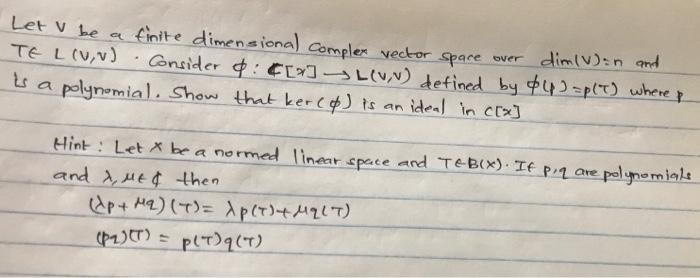 Let V be a finite dimensional complex vector space over dim(V)=n and
T∈ L(V,V). Consider ϕ: ₵[x] → L(V,V) defined by ϕ(p)=p(T) where p
is a polynomial. Show that ker(ϕ) is an ideal in C[x]
Hint: Let X be a normed linear space and T∈B(X). If p,q are polynomials
and λ, μ∈ ₵ then
(λp+ μq)(T)= λp(T)+μq(T)
(pq)(T) = p(T)q(T)